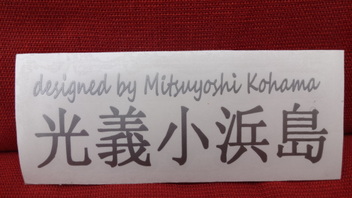 designed by Mitsuyoshi Kohama
光義小浜島